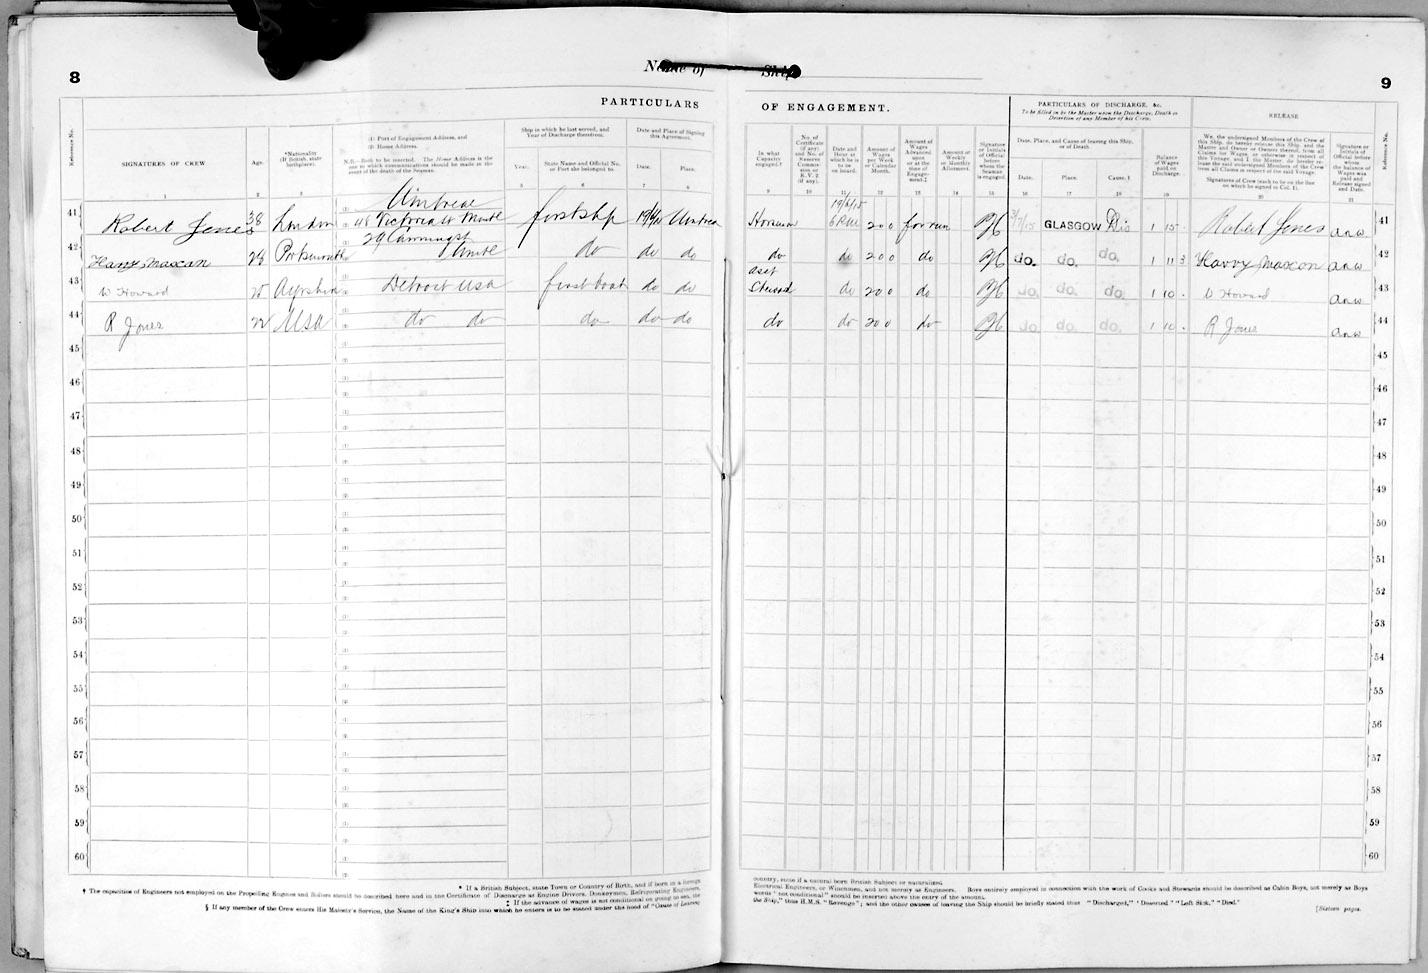 8
Name of Ship
9
PARTICULARS OF ENGAGEMENT.
PARTICULARS OF DISCHARGE, &c.
To be filled in by the Master upon the Discharge, Death or Desertion of any Member of his Crew.
RELEASE
Reference No.
SIGNATURES OF CREW
Age.
*Nationality (If British, state birthplace).
(1) Port of Engagement Address, and
(2) Home Address.
N.B.—Both to be inserted. The Home Address is the one to which communications should be made in the event of the death of the Seaman.
Ship in which he last served, and Year of Discharge therefrom.
Year.
State Name and Official No. or Port she belonged to.
Date and Place of Signing this Agreement.
Date.
Place.
In what Capacity engaged.†
No. of Certificate (if any) and No. of Reserve Commission or R.V. 2 (if any).
Date and Hour at which he is to be on board.
Amount of Wages per Week or Calendar Month.
Amount of Wages Advanced upon or at the time of Engagement.‡
Amount of Weekly or Monthly Allotment.
Signature or Initials of Official before whom the Seaman is engaged.
Date, Place, and Cause of leaving this Ship, or of Death.
Date.
Place.
Cause.
Balance of Wages paid on Discharge.
We, the undersigned Members of the Crew of this Ship, do hereby release this Ship, and the Master and Owner or Owners thereof, from all Claims for Wages, or otherwise in respect of this Voyage, and I, the Master, do hereby release the said undersigned Members of the Crew from all Claims in respect of the said Voyage.
Signatures of Crew (each to be on the line on which he signed in Col. 1).
Signature or Initials of Official before whom the balance of Wages was paid and Release signed and Date.
Reference No.
1 2 3 5 6 7 8 9 10 11 12 13 14 15 16 17 18 19 20 21
41 Robert Jones 38 London Montreal 48 Victoria St first ship Montreal Horseman 19/6/15 200 for run 3/7/15 GLASGOW Dis 1 15 Robert Jones 41
42 Harry Maxcan 28 Portsmouth do do do do do 200 do do. do. do. 1 11 3 Harry Maxcan 42
43 W Howard Ayrshire Detroit USA first boat do do asst Steward do 200 do do. do. do. 1 10 W Howard 43
44 R Jones 22 USA do do do do do do do 200 do do. do. do. 1 10 R Jones 44
45 45
46 46
47 47
48 48
49 49
50 50
51 51
52 52
53 53
54 54
55 55
56 56
57 57
58 58
59 59
60 60
* If a British Subject, state Town or Country of Birth, and if born in a foreign country, state if a natural born British Subject or naturalized.
† The capacities of Engineers not employed on the Propelling Engines and Boilers should be described here and in the Certificate of Discharge as Engine Drivers, Donkeymen, Refrigerating Engineers, Electrical Engineers, or Winchmen, and not merely as Engineers. Boys entirely employed in connection with the work of Cooks and Stewards should be described as Cabin Boys, not merely as Boys
‡ If the advance of wages is not conditional on going to sea, the words "not conditional" should be inserted above the entry of the amount.
§ If any member of the Crew enters His Majesty's Service, the Name of the King's Ship into which he enters is to be stated under the head of "Cause of Leaving the Ship," thus H.M.S. "Revenge"; and the other causes of leaving the Ship should be briefly stated thus "Discharged," "Deserted" "Left Sick," "Died."
[Sixteen pages.